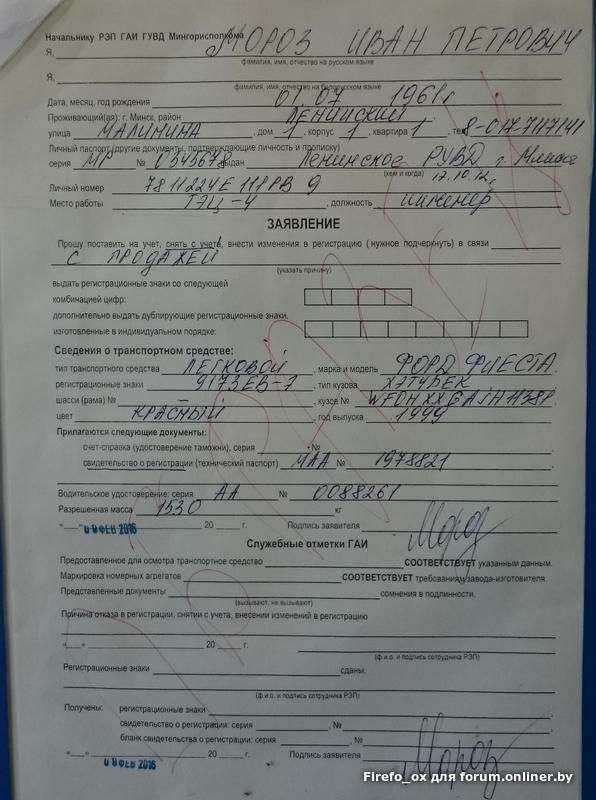 Начальнику РЭП ГАИ ГУВД Мингорисполкома
Я, МОРОЗ ИВАН ПЕТРОВИЧ
фамилия, имя, отчество на русском языке
Я,
фамилия, имя, отчество на белорусском языке
Дата, месяц, год рождения 01.07 1961г
Проживающий(ая): г. Минск, район ЛЕНИНСКИЙ
улица МАЛИНИНА, дом 1, корпус 1, квартира 1, тел. 8-017-7117141
Личный паспорт (другие документы, подтверждающие личность и прописку)
серия МР № 0345678 выдан Ленинское РУВД г. Минска
(кем и когда) 17.10.12
Личный номер 7811224Е 111РВ 9
Место работы ТЭЦ-4, должность инженер
ЗАЯВЛЕНИЕ
Прошу поставить на учет, снять с учета, внести изменения в регистрацию (нужное подчеркнуть) в связи
С ПРОДАЖЕЙ
(указать причину)
выдать регистрационные знаки со следующей
комбинацией цифр:
дополнительно выдать дублирующие регистрационные знаки,
изготовленные в индивидуальном порядке:
Сведения о транспортном средстве:
тип транспортного средства ЛЕГКОВОЙ, марка и модель ФОРД ФИЕСТА
регистрационные знаки 9173ЕВ-7, тип кузова ХЭТЧБЕК
шасси (рама) №, кузов №
цвет КРАСНЫЙ, год выпуска 1999
Прилагаются следующие документы:
счет-справка (удостоверение таможни), серия №
свидетельство о регистрации (технический паспорт) МАА № 1978821
Водительское удостоверение: серия АА № 0088261
Разрешенная масса 1530 кг
«__» 09 ФЕВ 2016 20 г. Подпись заявителя Мороз
Служебные отметки ГАИ
Предоставленное для осмотра транспортное средство СООТВЕТСТВУЕТ указанным данным.
Маркировка номерных агрегатов СООТВЕТСТВУЕТ требованиям завода-изготовителя.
Представленные документы сомнения в подлинности.
(вызывают, не вызывают)
Причина отказа в регистрации, снятии с учета, внесении изменений в регистрацию
«__» 20 г.
(ф.и.о. и подпись сотрудника РЭП)
Регистрационные знаки сданы.
(ф.и.о. и подпись сотрудника РЭП)
Получены: регистрационные знаки
свидетельство о регистрации: серия, №
бланк свидетельства о регистрации: серия, №
«__» 20 г. Подпись заявителя Мороз
09 ФЕВ 2016
Firefo_ox для forum.onliner.by